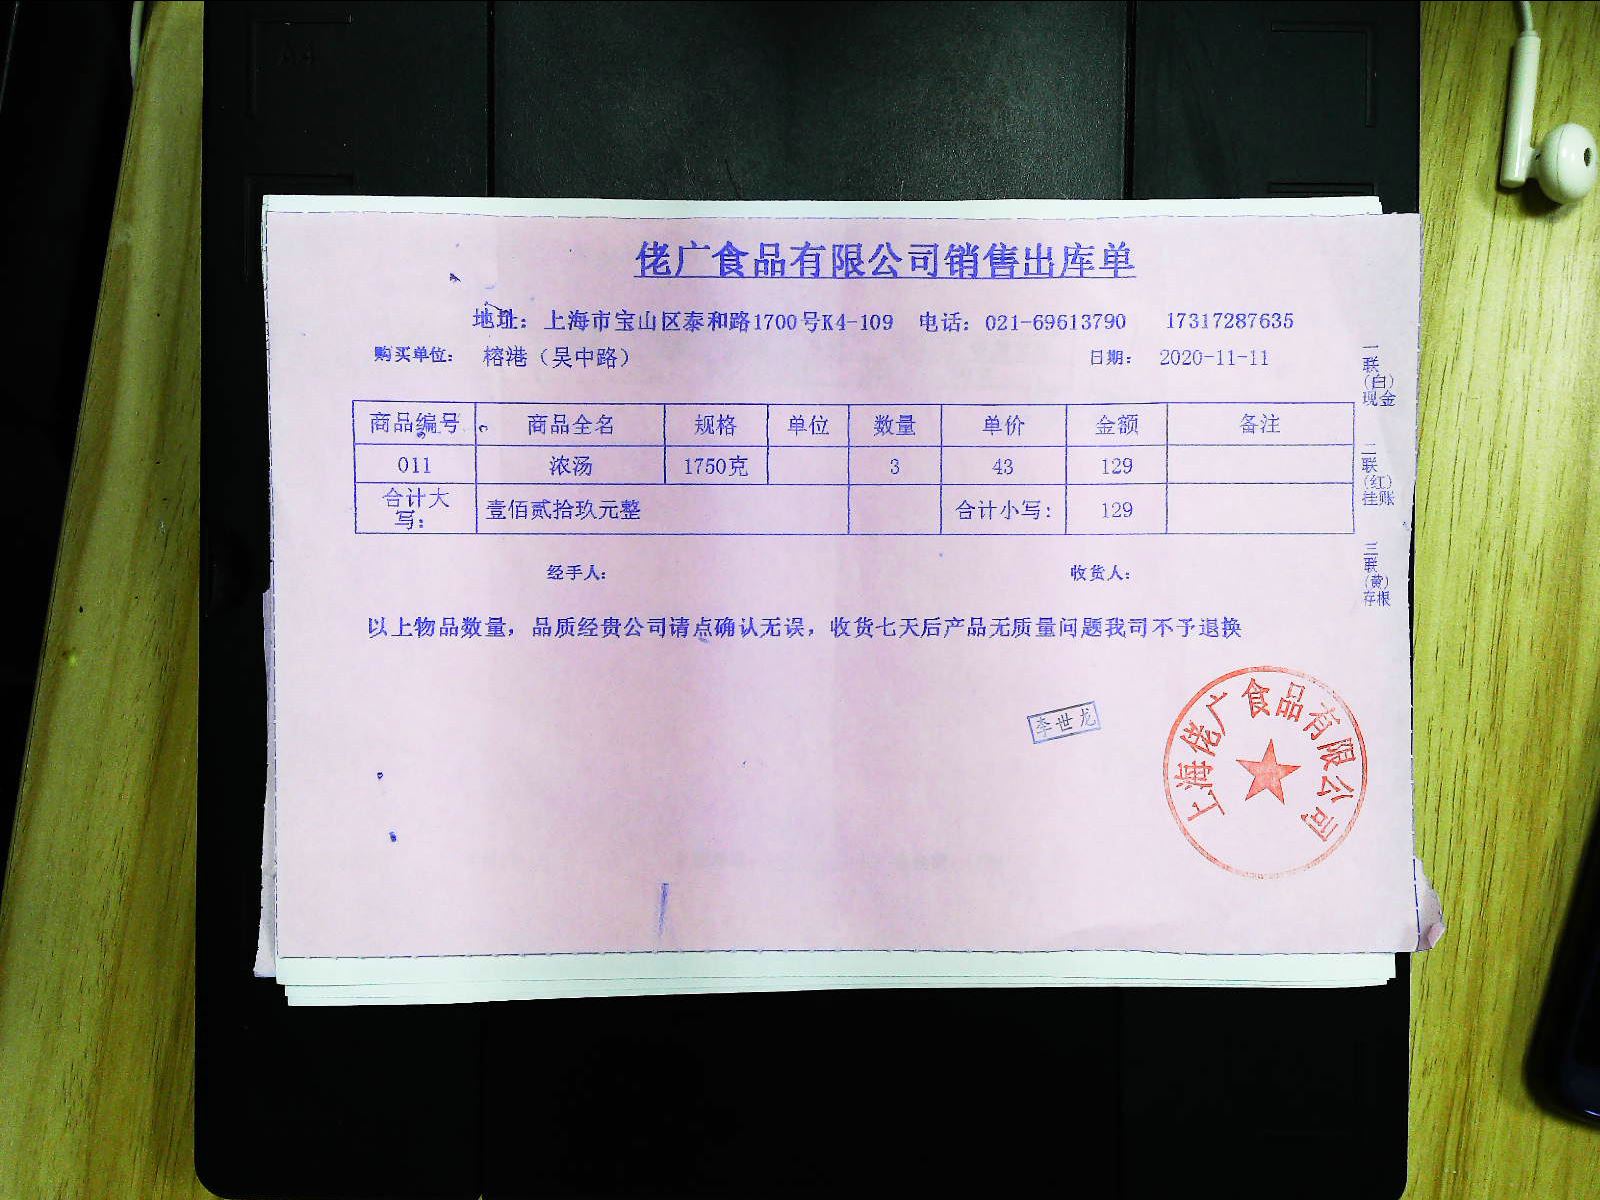 佬广食品有限公司销售出库单
地址：上海市宝山区泰和路1700号K4-109 电话：021-69613790 17317287635
购买单位： 榕港（吴中路） 日期： 2020-11-11
商品编号 商品全名 规格 单位 数量 单价 金额 备注
011 浓汤 1750克 3 43 129
合计大写： 壹佰贰拾玖元整 合计小写: 129
经手人： 收货人：
以上物品数量，品质经贵公司请点确认无误，收货七天后产品无质量问题我司不予退换
一联（白）现金
二联（红）挂账
三联（黄）存根
李世龙
上海佬广食品有限公司
A4